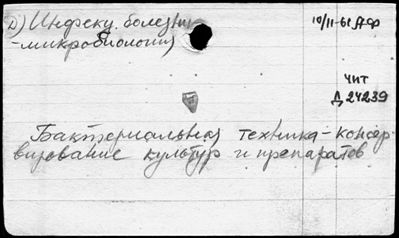 D) Инфекц. болезни
-микробиология)
10/II-61
чит
Д 24239
Бактериальная техника - консер
вирование культур и препаратов